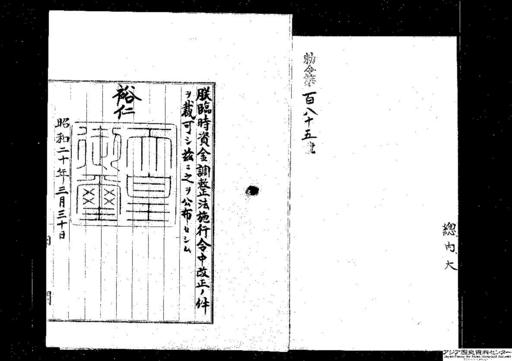 勅令第百八十五號
總内大
朕臨時資金調整法施行令中改正ノ件
ヲ裁可シ茲ニ之ヲ公布セシム
裕仁
天皇御璽
昭和二十年三月三十日
内閣
アジア歴史資料センター